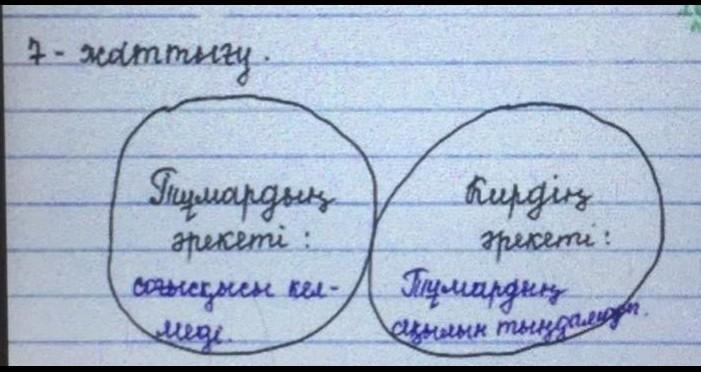 7 - жаттығу.
Тұмардың
әрекеті:
соғысқысы кел-
меді.
Кирдің
әрекеті:
Тұмардың
ақылын тыңдамады.